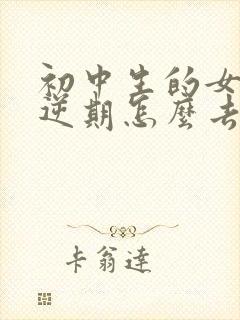 初中生的女
逆期怎麼去
卡翁達